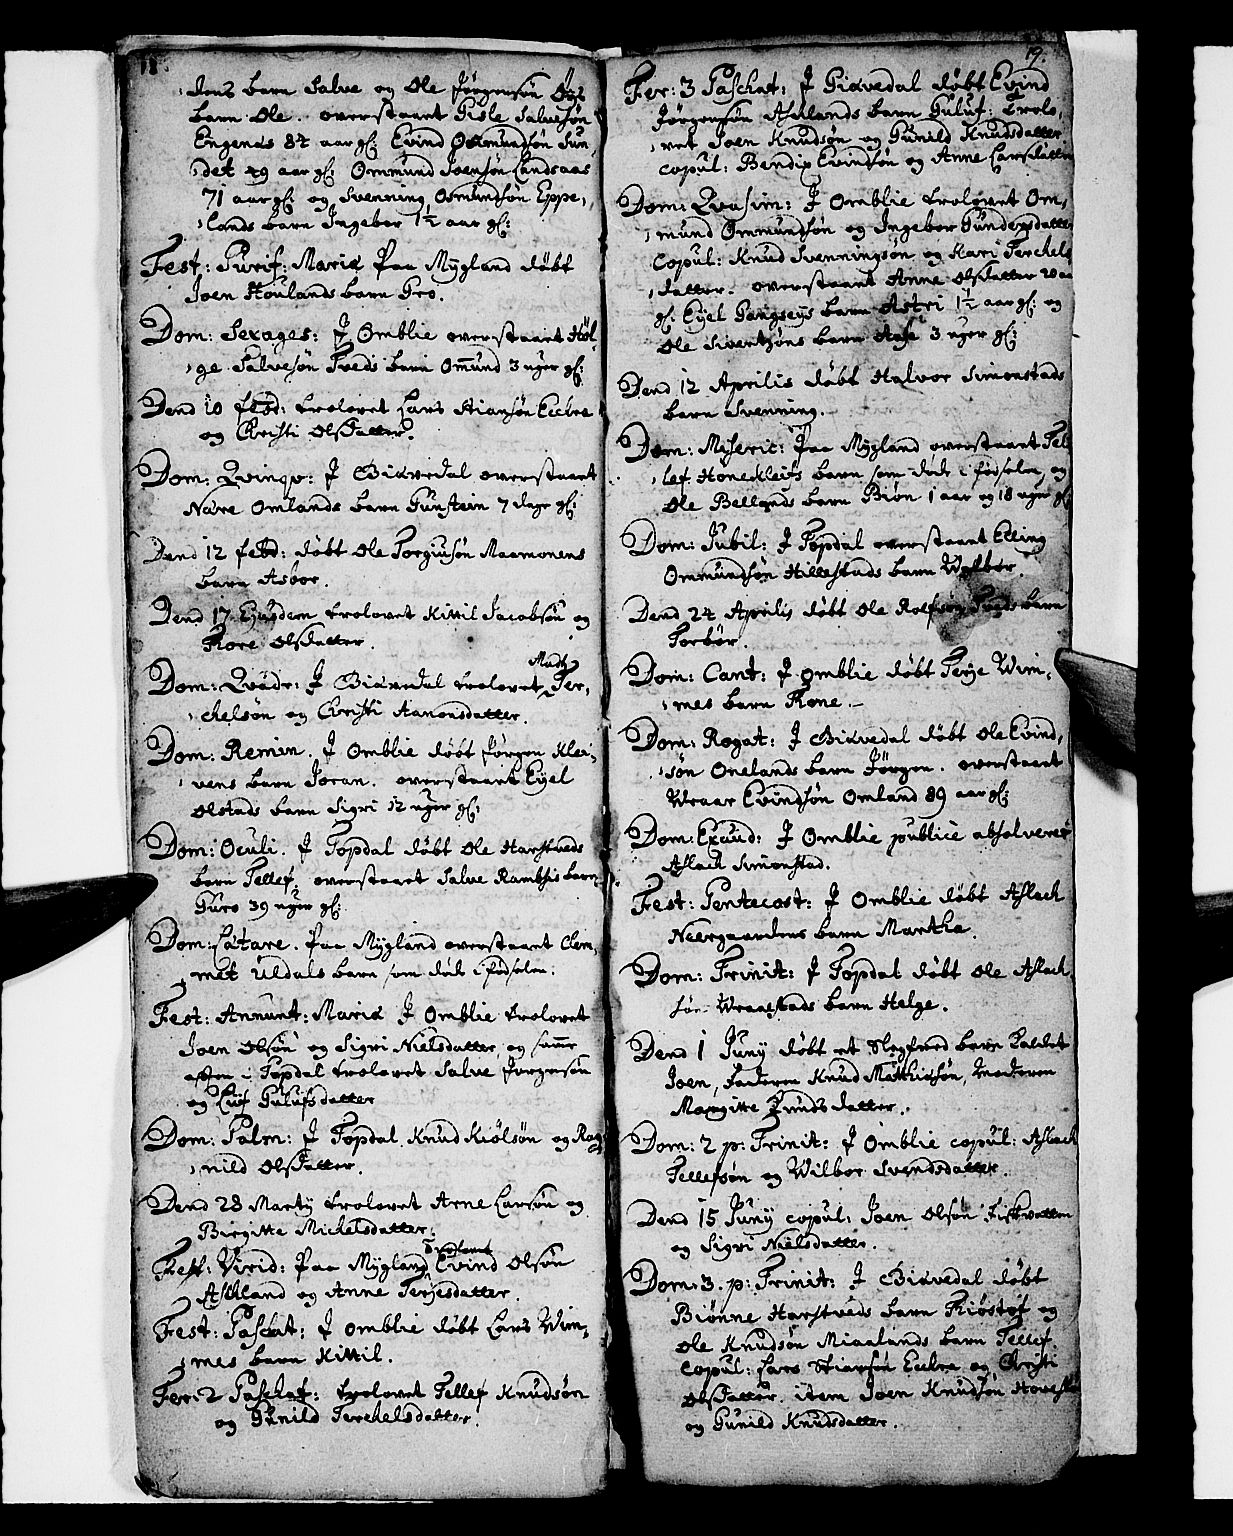 18.
dens barn Salve og Ole Jørgensøn Øys
barn Ole. overstaaet Gisle Salvesøn
Engenes 84 aar gl: Evind Ommundsøn Sun
det 49 aar gl: Ommund Joensøn Landsaas
71 aar gl: og Svenning Osmundsøn Eppe,
lands barn Ingebor 1½ aar gl:
Fest: Purif: Mariæ Paa Mygland døbt
Joen Houlands barn Gro.
Dom: Sexages: J Omblie overstaaet Høl-
ge Salvesøn Treds barn Omund 3 uger gl:
Dend 10 febr: trolovet Lars Stiansøn Eccre
og Christi Olsdatter.
Dom: Qvinqv: J Giævedal overstaaet
Nare Omlands barn Gunstein 7 dage gl:
Dend 12 febr: døbt Ole Torgiusøn Maamonens
barn Asbor.
Dend 17 Ejusdem trolovet Kittil Jacobsøn og
Thore Olsdatter.
Madz
Dom: Qvadr: J Giævedal trolovet Ter-
chelsøn og Christi Aanonsdatter.
Dom: Remin. J Omblie døbt Jørgen Klei-
vens barn Joran. overstaaet Eyel
Olstads barn Sigri 12 uger gl:
Dom: Oculi. J Topdal døbt Ole Harstveds
barn Tellef, overstaaet Salve Ramsis barn
Guro 39 uger gl:
Dom: Lætare. Paa Mygland overstaaet Clem-
met Uldals barn som døde i fødselen.
Fest: Annunt: Mariæ J Omblie trolovet
Joen Olsøn og Sigri Nielsdatter, og samme
aften i Topdal trolovet Salve Jørgensøn
og Luf Gulufsdatter
Dom: Palm: J Topdal Knud Kiølsøn og Rag-
nild Olsdatter.
Dend 28 Martij trolovet Arne Larsøn og
Birgitte Michelsdatter.
trolovet
Fest: Virid: Paa Mygland Evind Olsøn
Aschland og Anne Terjesdatter.
Fest: Paschat: J Omblie døbt Lars Wim-
mes barn Kittil.
Fer: 2 Paschat: trolovet Tellef Knudsøn
og Gunild Terchelsdatter.
19.
Fer: 3 Paschat: J Giævedal døbt Evind
Jørgensøn Aselands barn Guluf. Trolo,
vet Joen Knudsøn og Gunild Knudsdatter
copul: Bendix Evindsøn og Anne Larsdatter
Dom: Qvasim: J Omblie trolovet Om,
mund Ommundsøn og Ingebor Gundersdatter
Copul: Knud Svenningsøn og Kari Terchels
datter. overstaaet Anne Olsdatter 20 aar
gl: Eyel Gangseys barn Astri 1½ aar gl: og
Ole Sivertsøns barn Aase 3 uger gl:
Dend 12 Aprilis døbt Halvor Simonstads
barn Svenning.
Dom: Miseric: Paa Mygland overstaaet Tel
lef Honeckleifs barn som døde i fødselen, og
Ole Bellands barn Biøn 1 aar og 18 uger gl:
Dom: Jubil: J Topdal overstaaet Elling
Ommundsøn Hillestads barn Wolbor.
Dend 24 Aprilis døbt Ole Rolfsøn Treds barn
Torbør.
Dom: Cant: J Omblie døbt Terje Wim-
mes barn Thone.
Dom: Rogat: J Giævedal døbt Ole Evind,
søn Onelands barn Jørgen. overstaaet
Wraar Evindsøn Omland 89 aar gl:
Dom: Exaud: J Omblie publice absolveret
Aslach Simonstad.
Fest: Pentecost: J Omblie døbt Aslach
Neergaardens barn Martha.
Dom: Trinit: J Topdal døbt Ole Aslach
søn Wraalstads barn Helge.
Dend 1 Junij døbt et Slegfred barn kaldet
Joen, Faderen Knud Matthiæsøn, Moderen
Margitte Knudsdatter.
Dom: 2 p: Trinit: J Omblie copul: Aslach
Tellefsøn og Wilbor Svendsdatter.
Dend 15 Junij copul: Joen Olsøn Fiskvatten
og Sigri Nielsdatter.
Dom: 3. p: Trinit: J Giævedal døbt
Biønne Harstveds barn Kiøstof og
Ole Knudsøn Miaalands barn Tellef
Copul: Lars Stiansøn Eccre og Christi
Olsdatter. item Joen Knudsøn
og Gunild Knudsdatter.